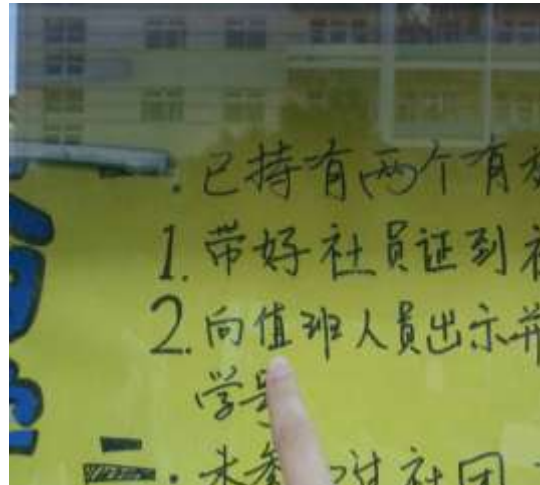 一.已持有两个有效
1.带好社员证到社
2.向值班人员出示并
学号
二.未参加过社团